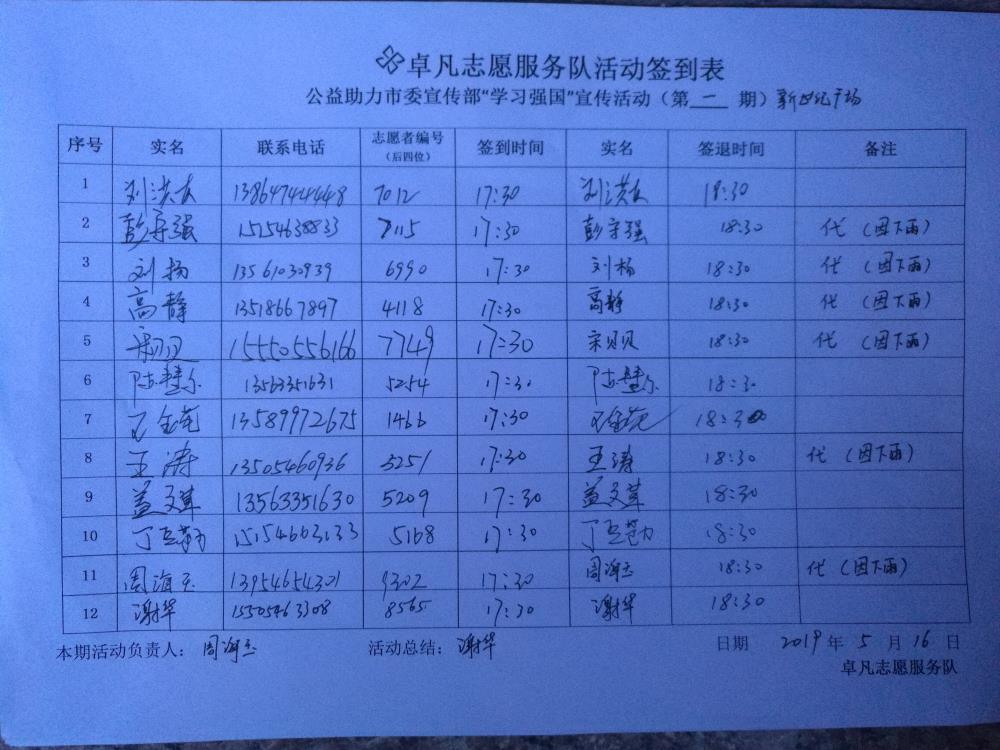 卓凡志愿服务队活动签到表
公益助力市委宣传部“学习强国”宣传活动（第 一 期）新世纪广场
序号 实名 联系电话 志愿者编号（后四位） 签到时间 实名 签退时间 备注
1 刘洪友 13864744448 7012 17:30 刘洪友 18:30
2 彭守强 15154638833 7115 17:30 彭守强 18:30 代（因下雨）
3 刘杨 13561030939 6990 17:30 刘杨 18:30 代（因下雨）
4 高静 13518667897 4118 17:30 高静 18:30 代（因下雨）
5 15550556166 7749 17:30 宋贝贝 18:30 代（因下雨）
6 陈慧尔 13563351631 5254 17:30 陈慧尔 18:30
7 13589972675 1466 17:30 18:30
8 王涛 13505460936 5251 17:30 王涛 18:30 代（因下雨）
9 盖文革 13563351630 5209 17:30 盖文革 18:30
10 15154663133 5168 17:30 18:30
11 周海玉 13954654301 9302 17:30 周海玉 18:30 代（因下雨）
12 谢华 15505463308 8565 17:30 谢华 18:30
本期活动负责人：周海玉 活动总结：谢华 日期 2019 年 5 月 16 日
卓凡志愿服务队